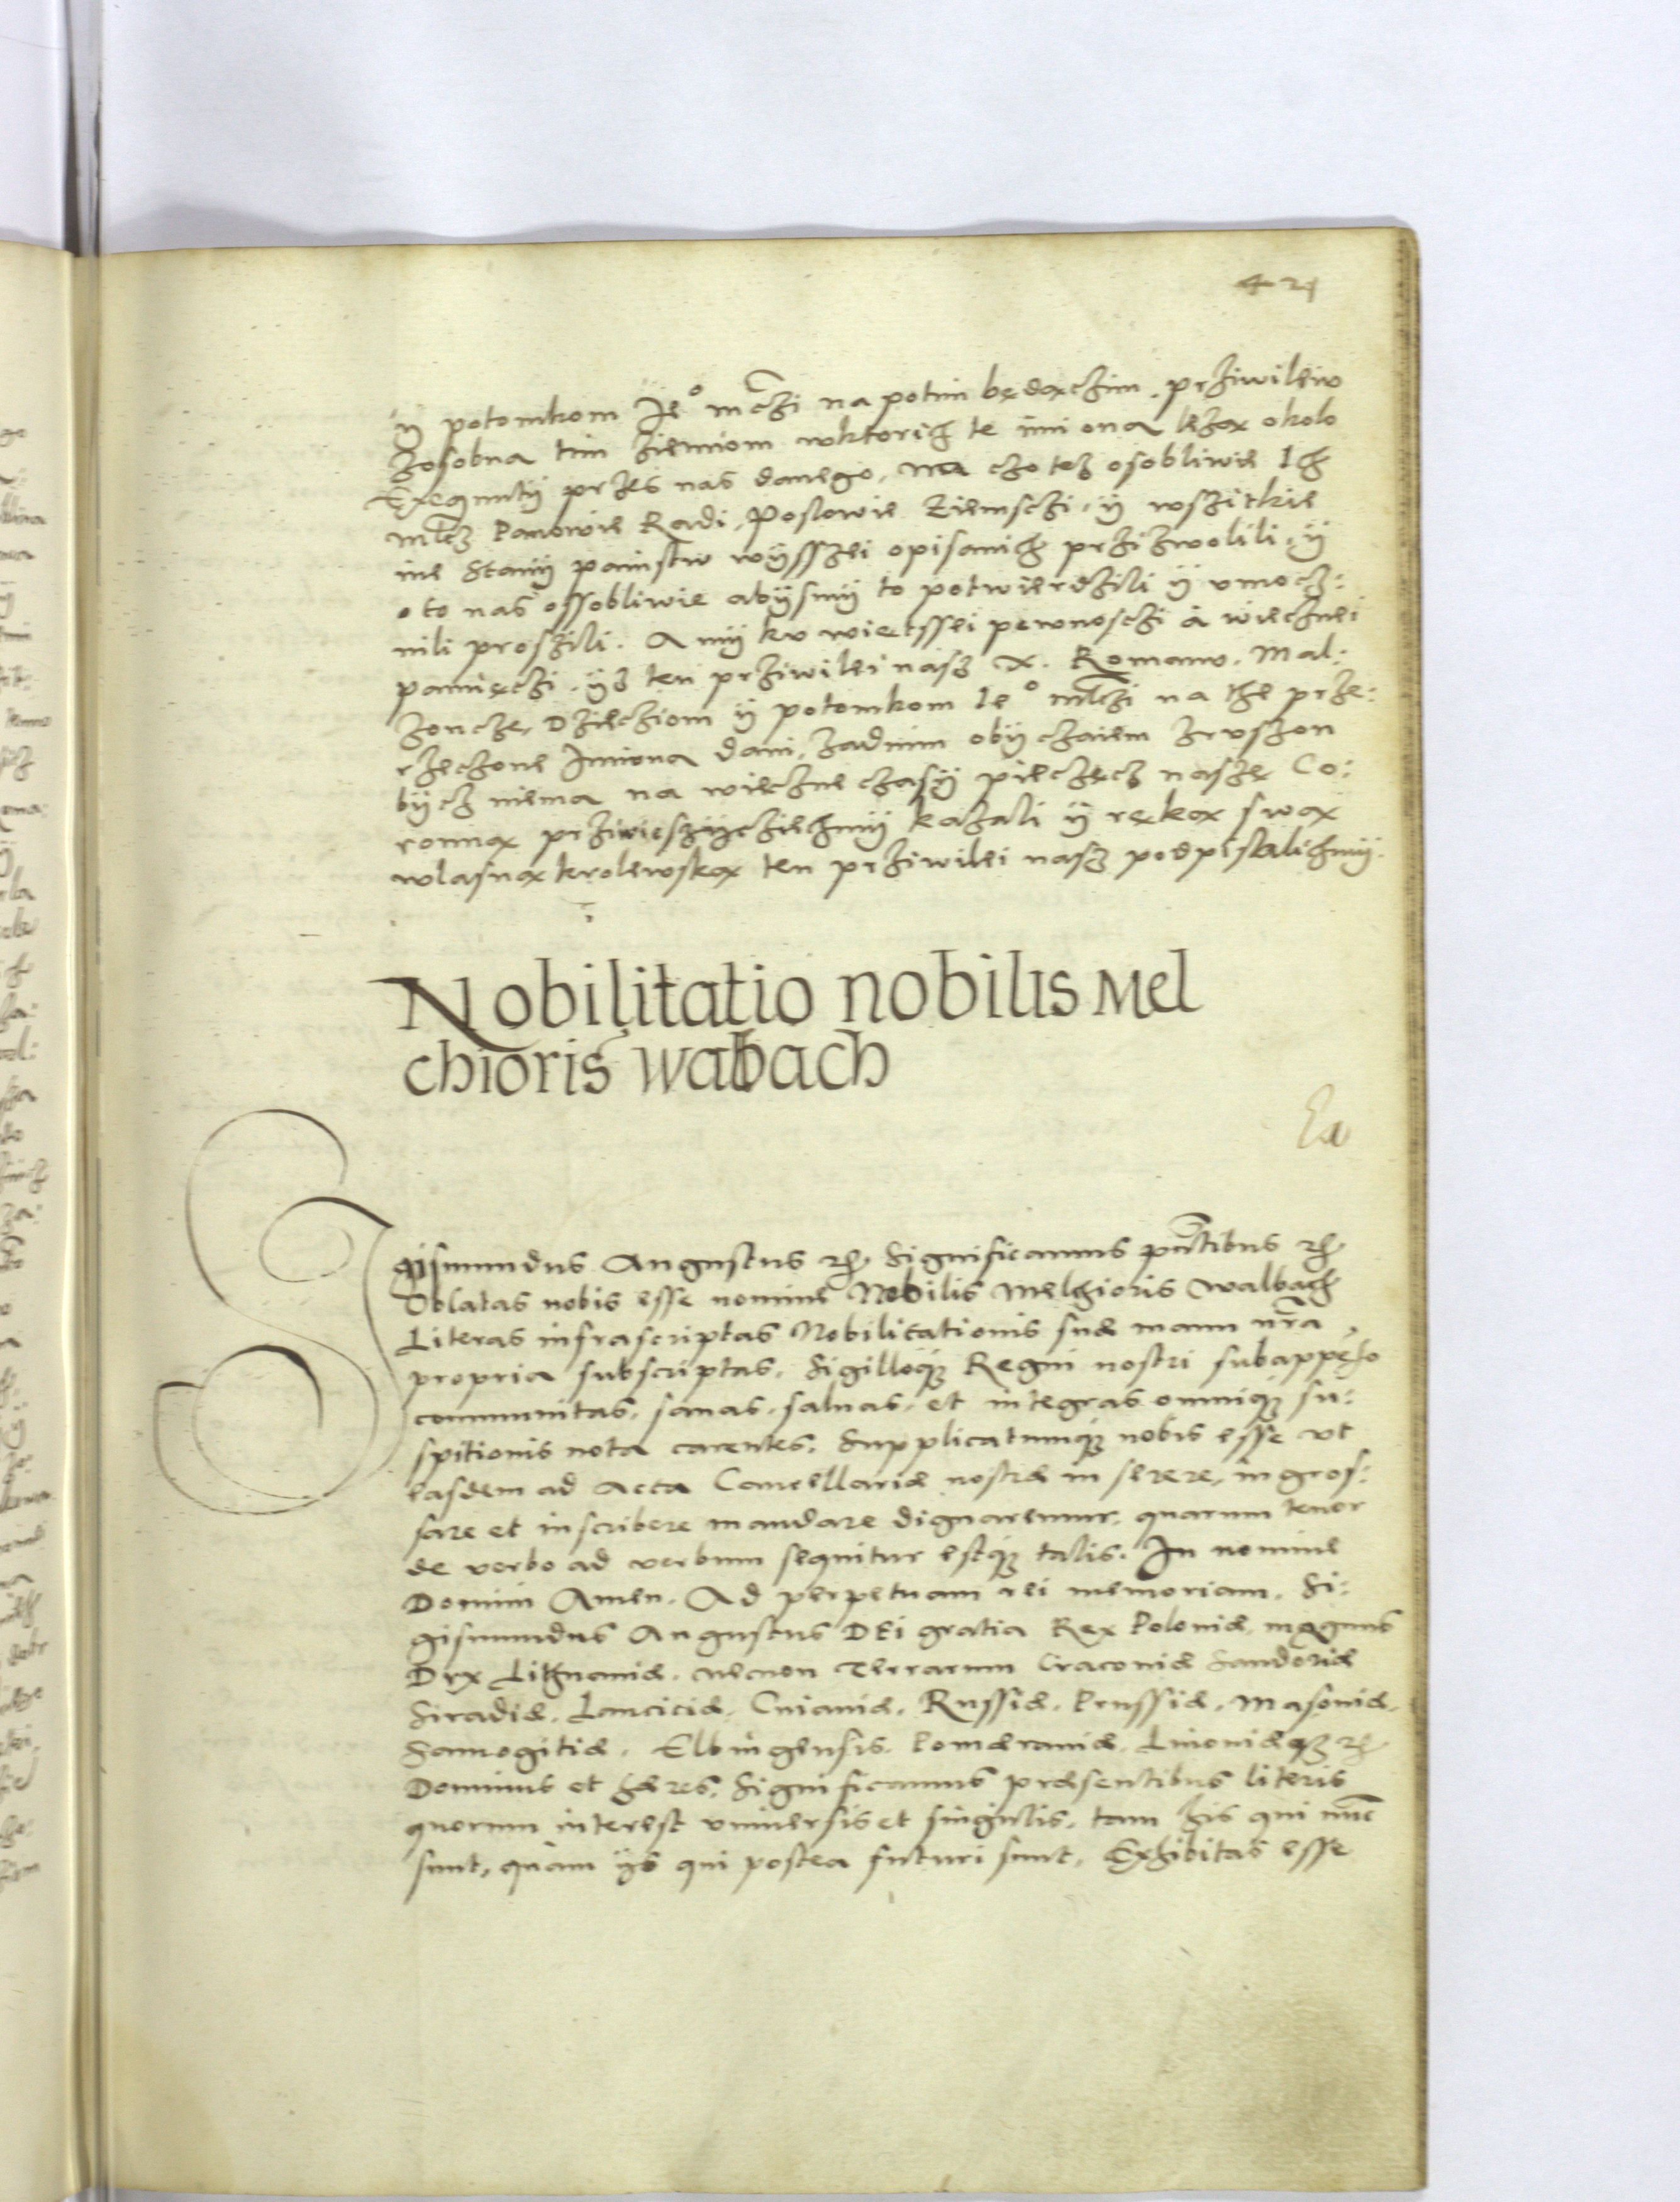 421
ÿ potomkom Ie° mczi na potim będączim, prziwileiw
zosobna tim ziemiom wktorich te imiona leżą około
Exequutÿ przes nas danego, na czo też osobliwie Ich
mcz Panowie Radi, Poslowie Ziemsczi, ÿ wszitkie
ine Stanÿ painstw wÿsszei opisanich przizwolili, ÿ
oto nas ossobliwie abÿsmÿ to potwierdzili ÿ vmocz:
nili proszili. A mÿ ku więtssei pewnosczi á wiecznei
pamięczi, ÿz ten prziwilei nasz X. Romanw. Mal:
zoncze, Dzieciom ÿ potomkom Ie° mlczi na the prze:
rzeczone Imiona dani, zadnim obÿczaiem zruszon
bÿcz niema na wieczne czasÿ pieczęcz naszę Co:
ronną prziwiesziczichmÿ kazali ÿ ręką swą
wlasną krolewską ten prziwilei nasz podpisalichmÿ.
Nobilitatio nobilis Mel
chioris Walbach
Sigismundus Augustus rc. Significamus pntibus rc.
Oblatas nobis esse nomine Nobilis Melchioris Walbach
Literas infrascriptas Nobilitationis suæ manu nra
propria subscriptas, Sigilloq; Regni nostri subappeso
communitas, sanas, saluas, et integras omniq; su:
spitionis nota carentes, Supplicatumq; nobis esse vt
easdem ad acta Cancellariæ nostræ inserere, ingros:
sare et inscribere mandare dignaremur, quarum tenor
de verbo ad verbum sequitur estq; talis. In nomine
Domini Amen. Ad perpetuam rei memoriam. Si:
gismundus Augustus Dei gratia Rex Poloniæ, magnus
Dux Lithuaniæ, necnon Terrarum Cracoviæ Sandoriæ
Siradiæ, Lanciciæ, Cuiaviæ, Russiæ, Prussiæ, Masoviæ,
Samogitiæ, Elbingensis, Pomæraniæ, Livoniæq; rc
Dominus et hæres, Significamus præsentibus literis
quorum interest vniuersis et singulis, tam his qui nunc
sunt, quàm ÿs qui postea futuri sunt, Exhibitas esse